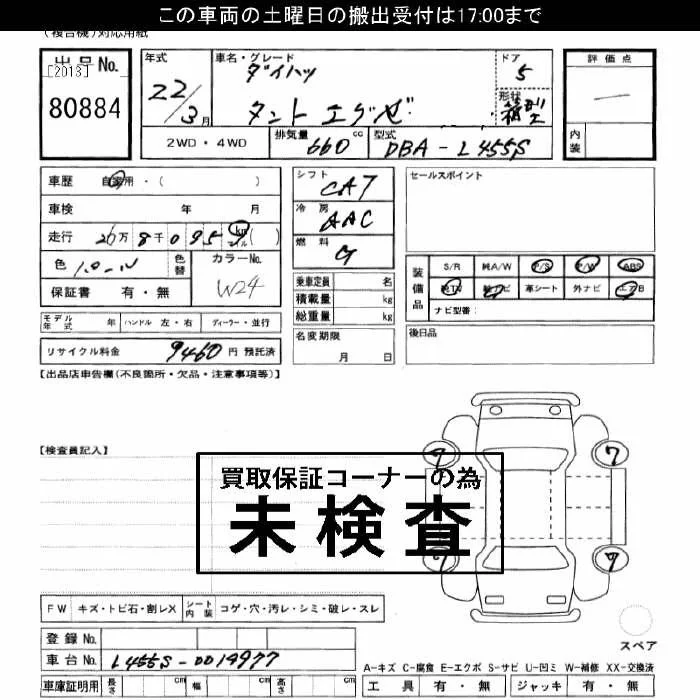 この車両の土曜日の搬出受付は17:00まで
(複合機)対応用紙
出品No. 年式 車名・グレード ドア 評価点
[2013] 22/3月 ダイハツ 5
80884 タント エグゼ 形状 箱型 内装
2WD・4WD 排気量 660 cc 型式 DBA-L455S
車歴 自家用・( ) シフト CAT セールスポイント
車検 年 月 冷房 AAC
走行 26万8千095 km マイル ( ) 燃料 G
色 パール 色替 カラーNo. W24
保証書 有・無
装備品 S/R 純A/W P/S P/W ABS
純TV 純ナビ 革シート 外ナビ エアB
ナビ型番:
乗車定員 名
積載量 kg
総重量 kg
モデル年式 年 ハンドル 左・右 ディーラー・並行
名変期限 月 日
後日品
リサイクル料金 9460 円 預託済
【出品店申告欄(不良箇所・欠品・注意事項等)】
【検査員記入】
買取保証コーナーの為
未検査
7 7
7 7
FW キズ・トビ石・割レX シート内装 コゲ・穴・汚レ・シミ・破レ・スレ
登録No.
車台No. L455S-0014977
スペア
A-キズ C-腐食 E-エクボ S-サビ U-凹ミ W-補修 XX-交換済
車庫証明用 長さ cm 幅 cm 高さ cm 工具 有・無 ジャッキ 有・無